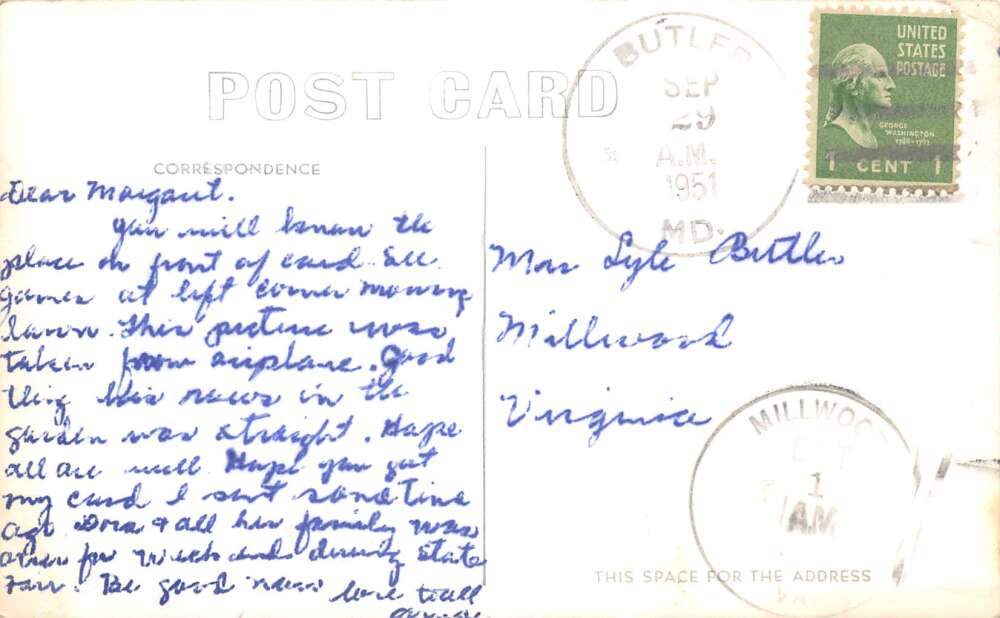 POST CARD
CORRESPONDENCE
Dear Margaret.
You will know the
place on front of card. See
James at left corner mowing
lawn. This picture was
taken from airplane. Good
thing his rows in the
garden was straight. Hope
all are well. Hope you got
my card I sent some time
ago. Dora & all her family was
over for week ends during State
Fair. Be good now love to all
BUTLER
SEP
29
A.M.
1951
MD.
UNITED
STATES
POSTAGE
GEORGE
WASHINGTON
1789-1797
1 CENT 1
Mrs Lyle Butler
Millwood
Virginia
MILLWOOD
OCT
1
AM
VA.
THIS SPACE FOR THE ADDRESS